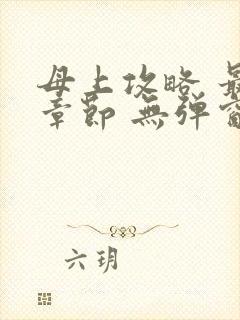 母上攻略 最
章節 無彈窗
六玥